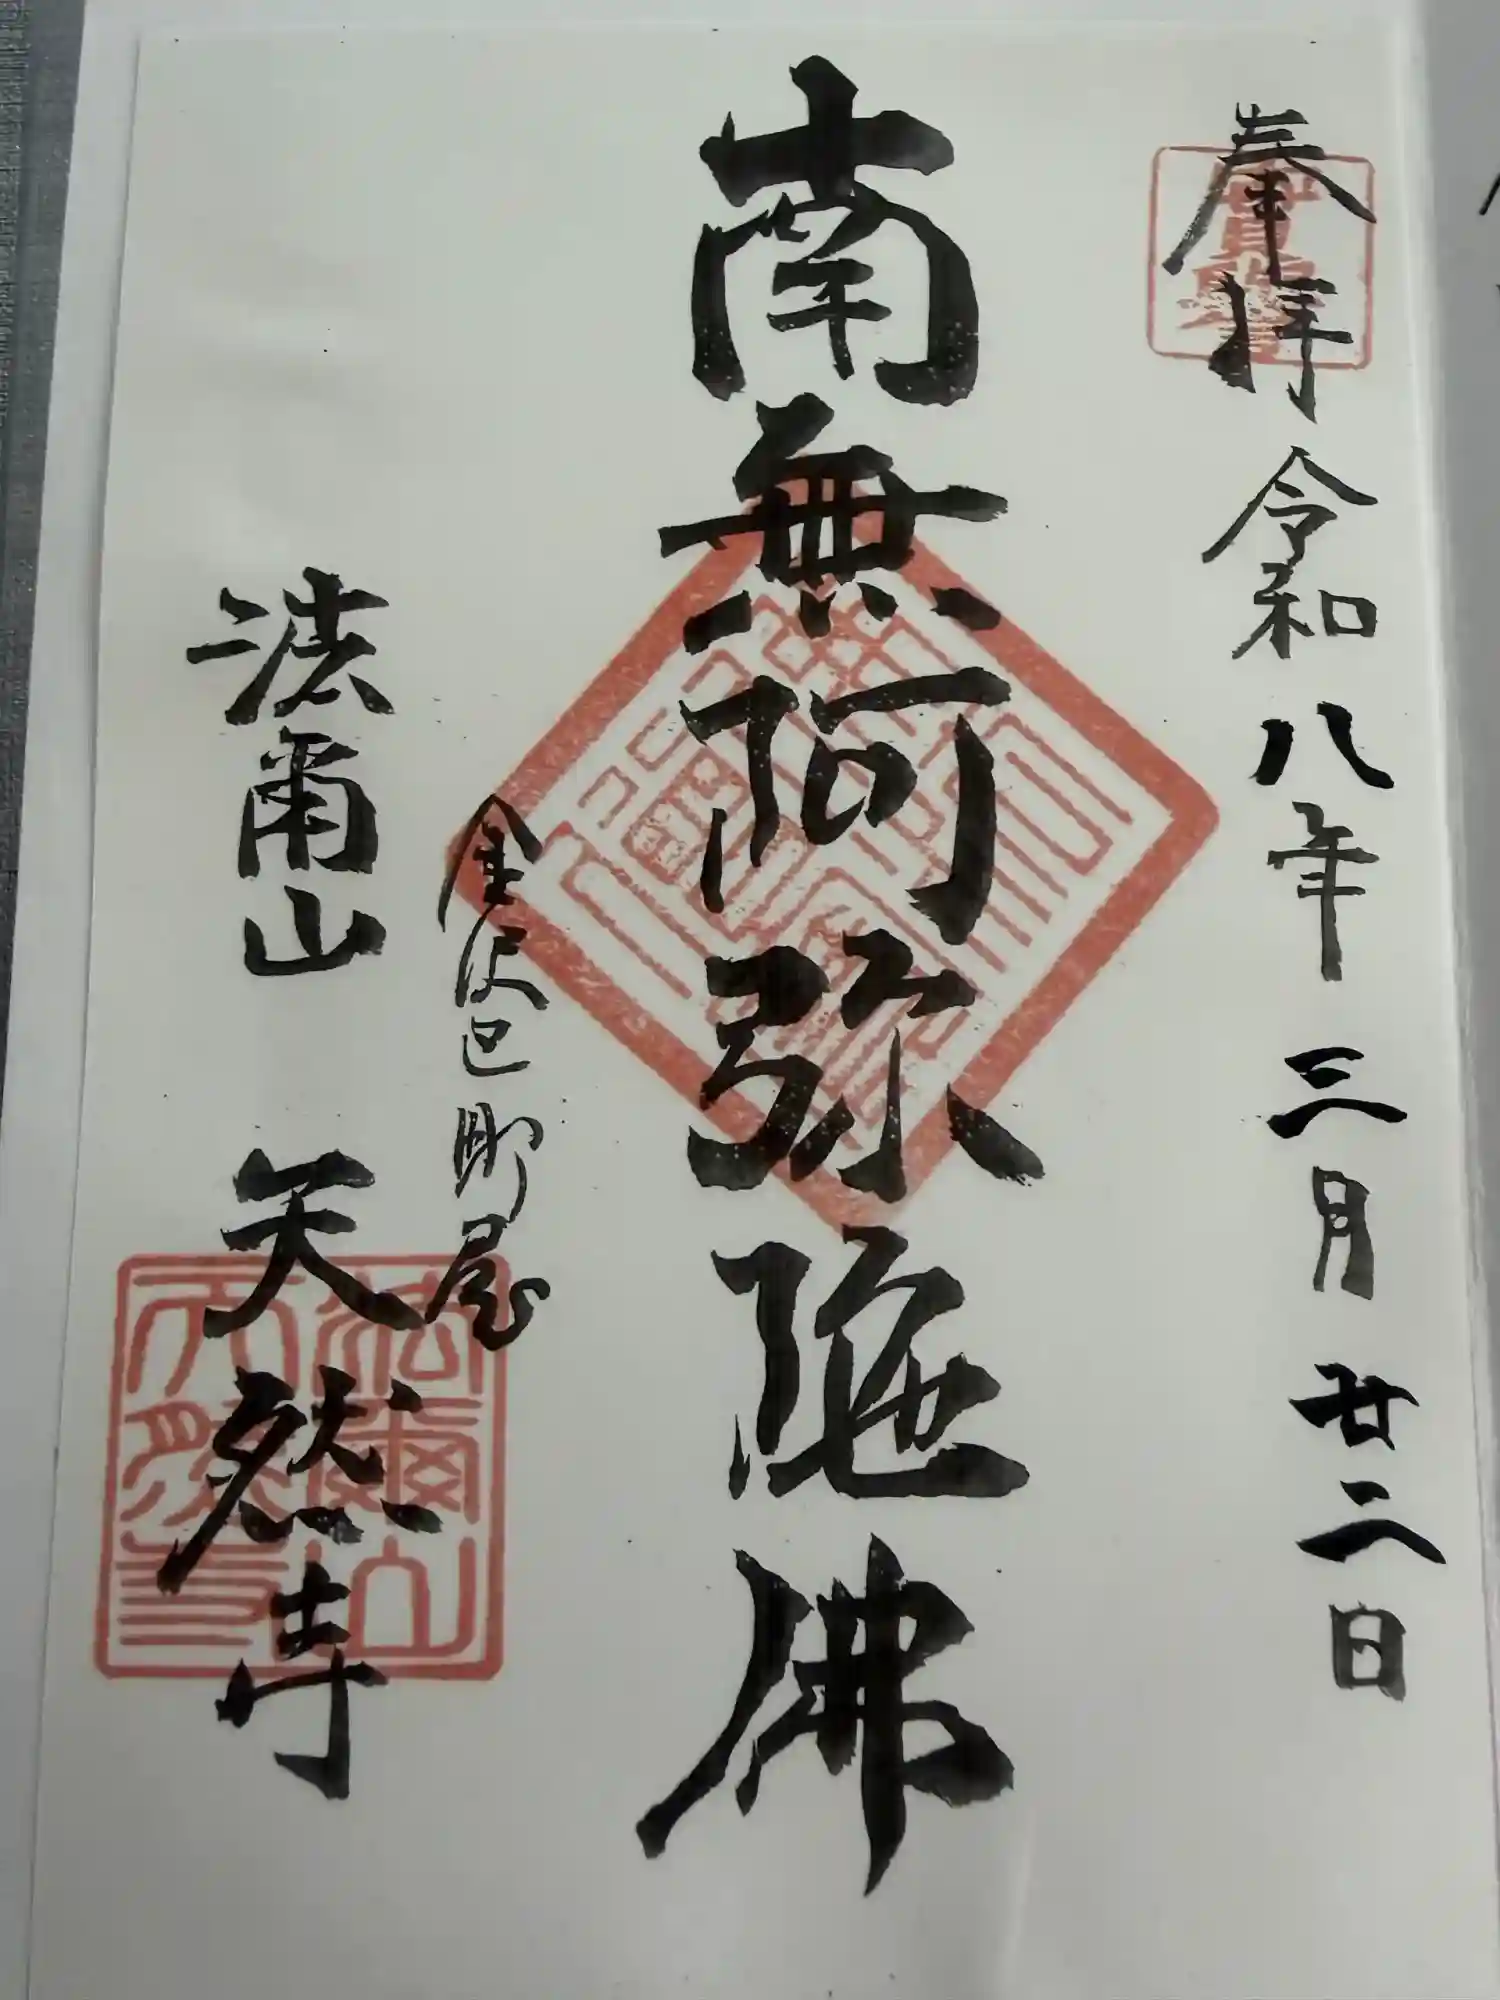 奉拝 令和八年三月廿二日
南無阿弥陀佛
金沢区町屋
法爾山 天然寺
法爾山
天然寺